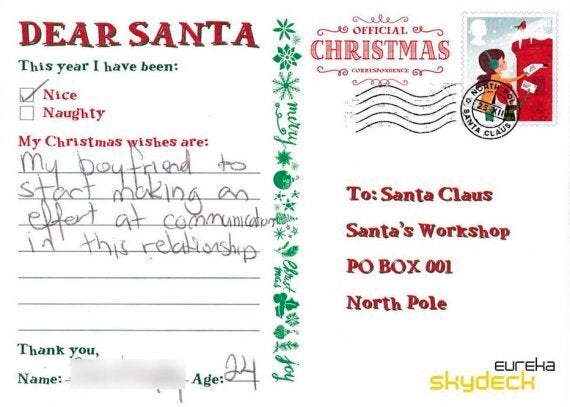 DEAR SANTA
This year I have been:
Nice
Naughty
My Christmas wishes are:
My boyfriend to
start making an
effort at communication
in this relationship
Thank you,
Name:
Age: 24
merry
Christmas
joy
OFFICIAL
CHRISTMAS
CORRESPONDENCE
NORTH POLE
25 XII
SANTA CLAUS
To: Santa Claus
Santa's Workshop
PO BOX 001
North Pole
eureka
skydeck